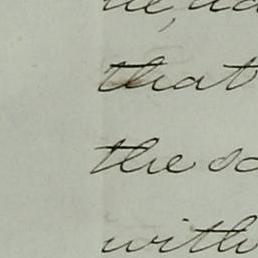 that
the so
with